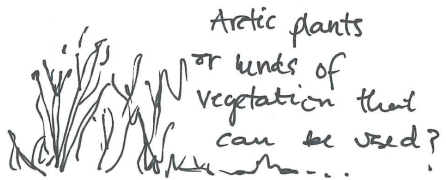 Arctic plants
or kinds of
vegetation that
can be used?